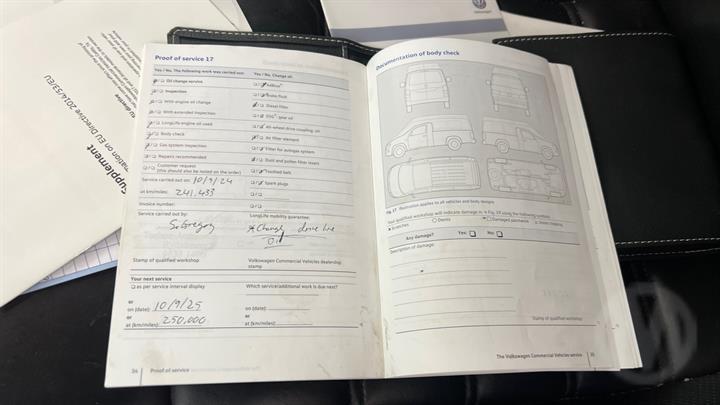 Supplement
mation on EU Directive 2014/53/EU
Proof of service 17
Yes / No, The following work was carried out:
Oil change service
Inspection
With engine oil change
With extended inspection
LongLife engine oil used
Body check
Gas system inspection
Repairs recommended
Customer request
(this should also be noted on the order)
Service carried out on: 10/9/24
at km/miles: 241,433
Invoice number:
Service carried out by:
Stamp of qualified workshop
Your next service
as per service interval display
or
on (date): 10/9/25
or
at (km/miles): 250,000
34 Proof of service
Yes / No, Change of:
AdBlue
Brake fluid
Diesel filter
DSG gear oil
All-wheel drive coupling: oil
Air filter element
Filter for autogas system
Dust and pollen filter insert
Toothed belt
Spark plugs
LongLife mobility guarantee:
Change drive line
Oil
Volkswagen Commercial Vehicles dealership
stamp
Which service/additional work is due next?
or
on (date):
or
at (km/miles):
Documentation of body check
Fig. 17 Illustration applies to all vehicles and body designs
Your qualified workshop will indicate damage in Fig. 17 using the following symbols:
Scratches
Dents
Damaged paintwork
Stone chipping
Any damage? Yes: No:
Description of damage:
Stamp of qualified workshop
The Volkswagen Commercial Vehicles service 35